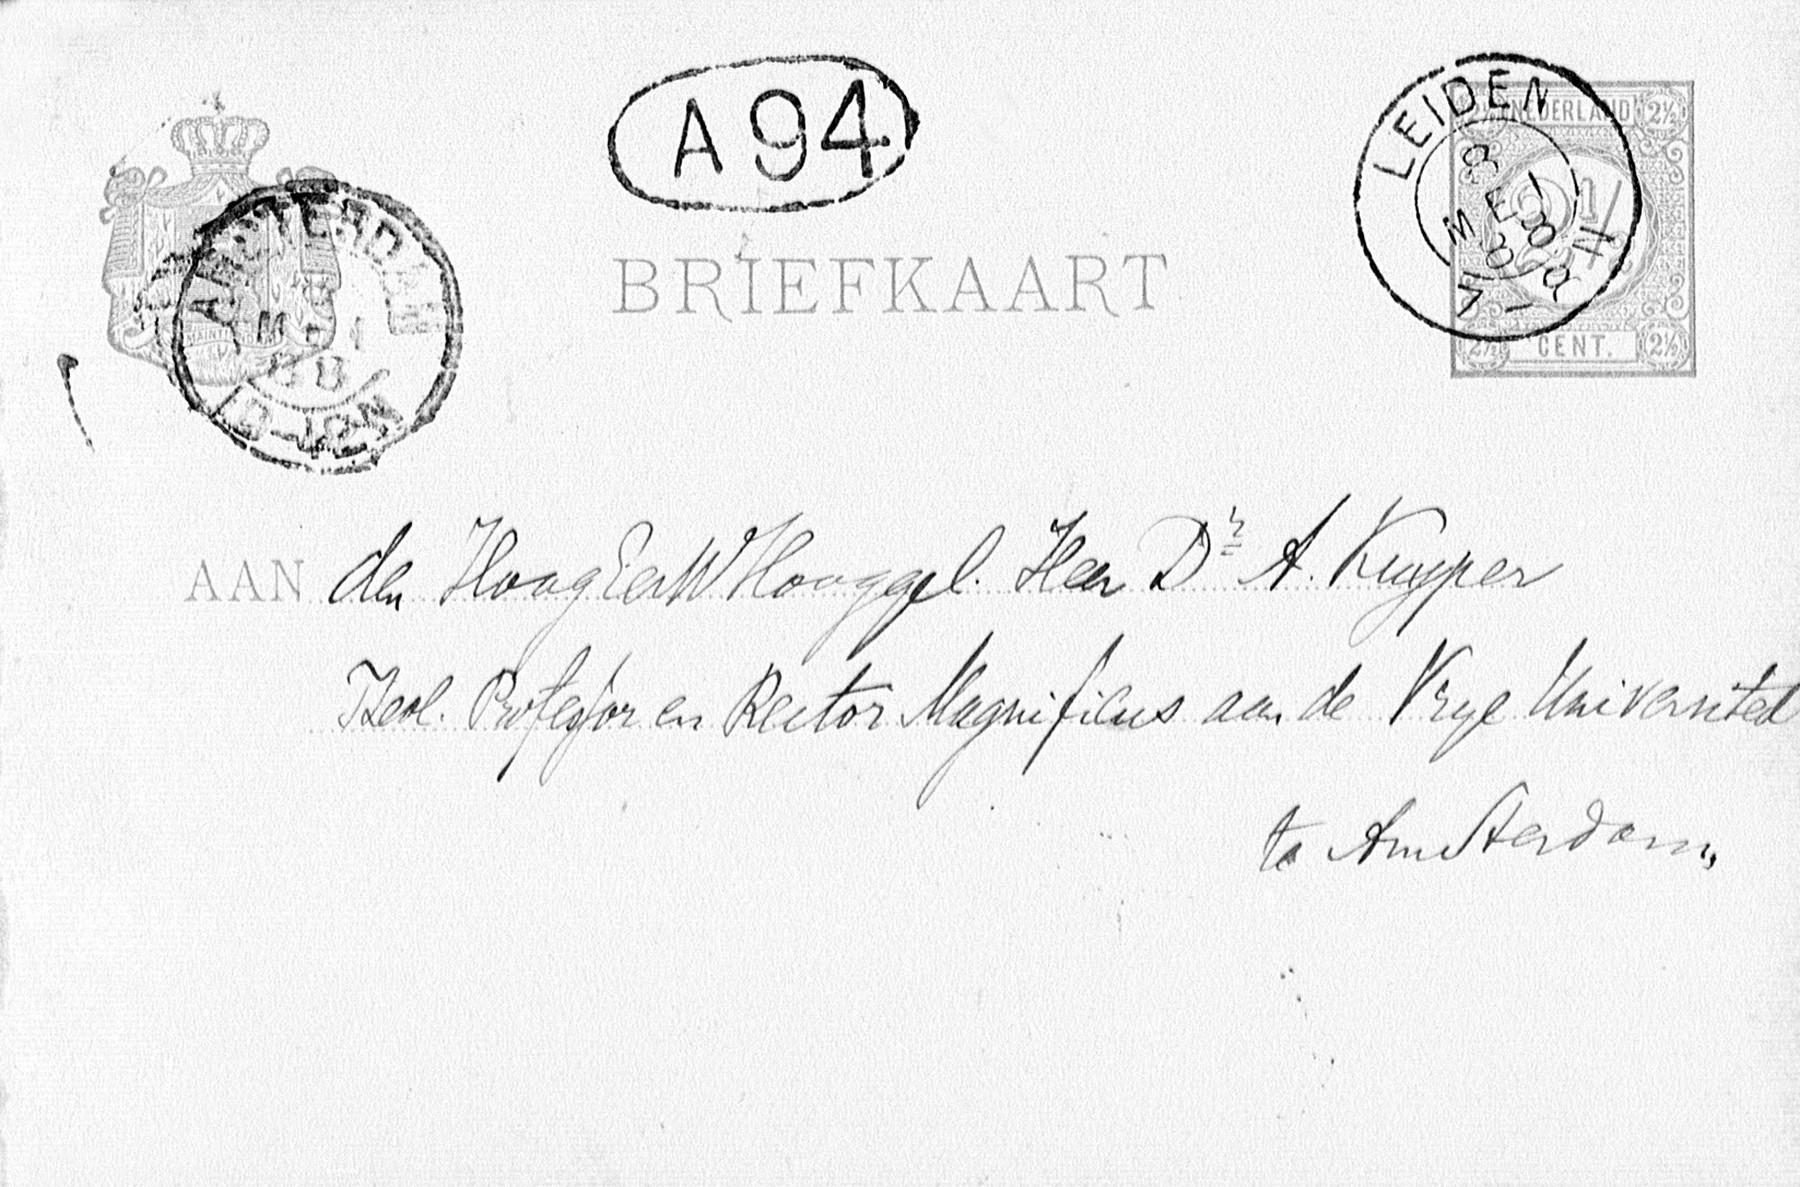 A 94
LEIDEN
NEDERLAND
2½
2½
CENT.
2½
2½
AMSTERDAM
BRIEFKAART
AAN den HoogEerW Hooggel. Heer Dr A. Kuyper
Theol. Professor en Rector Magnificus aan de Vrye Universiteit
te Amsterdam,